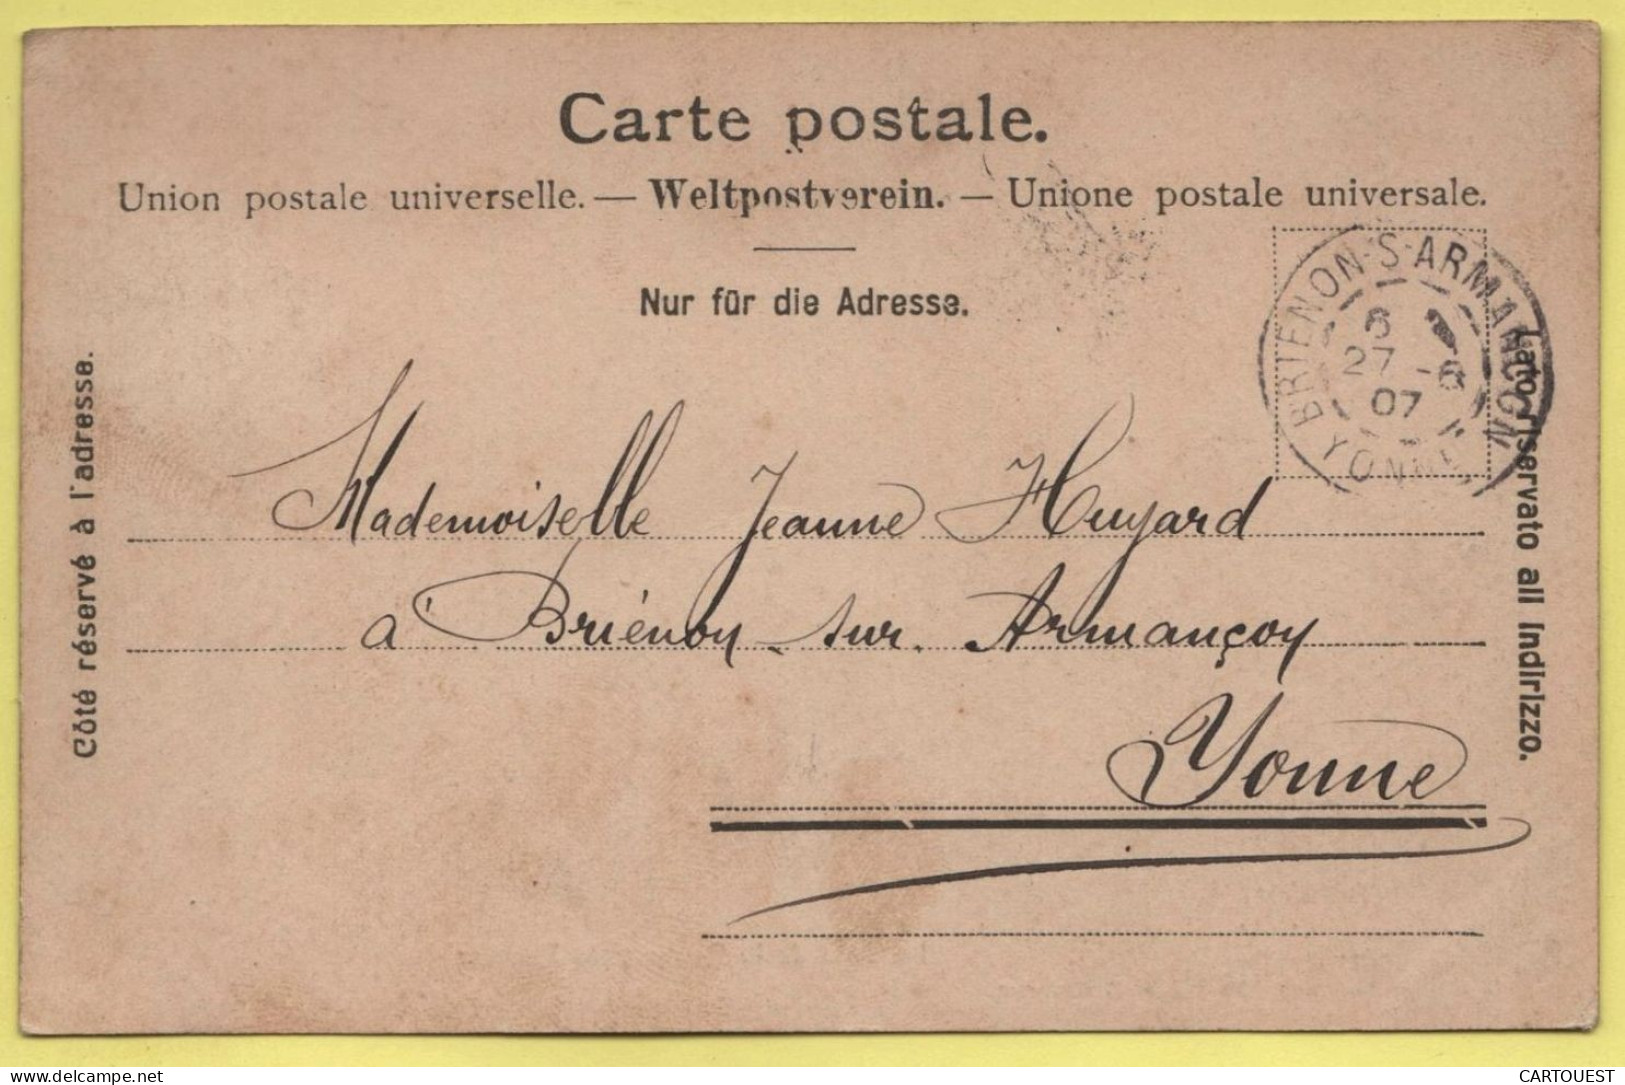 Carte postale.
Union postale universelle. — Weltpostverein. — Unione postale universale.
Nur für die Adresse.
Côté réservé à l'adresse.
BRIENON-S-ARMANCON
6
27 -6
07
YONNE
Lato riservato all indirizzo.
Mademoiselle Jeanne Huyard
à Briénon sur Armançon
Yonne
CARTOUEST